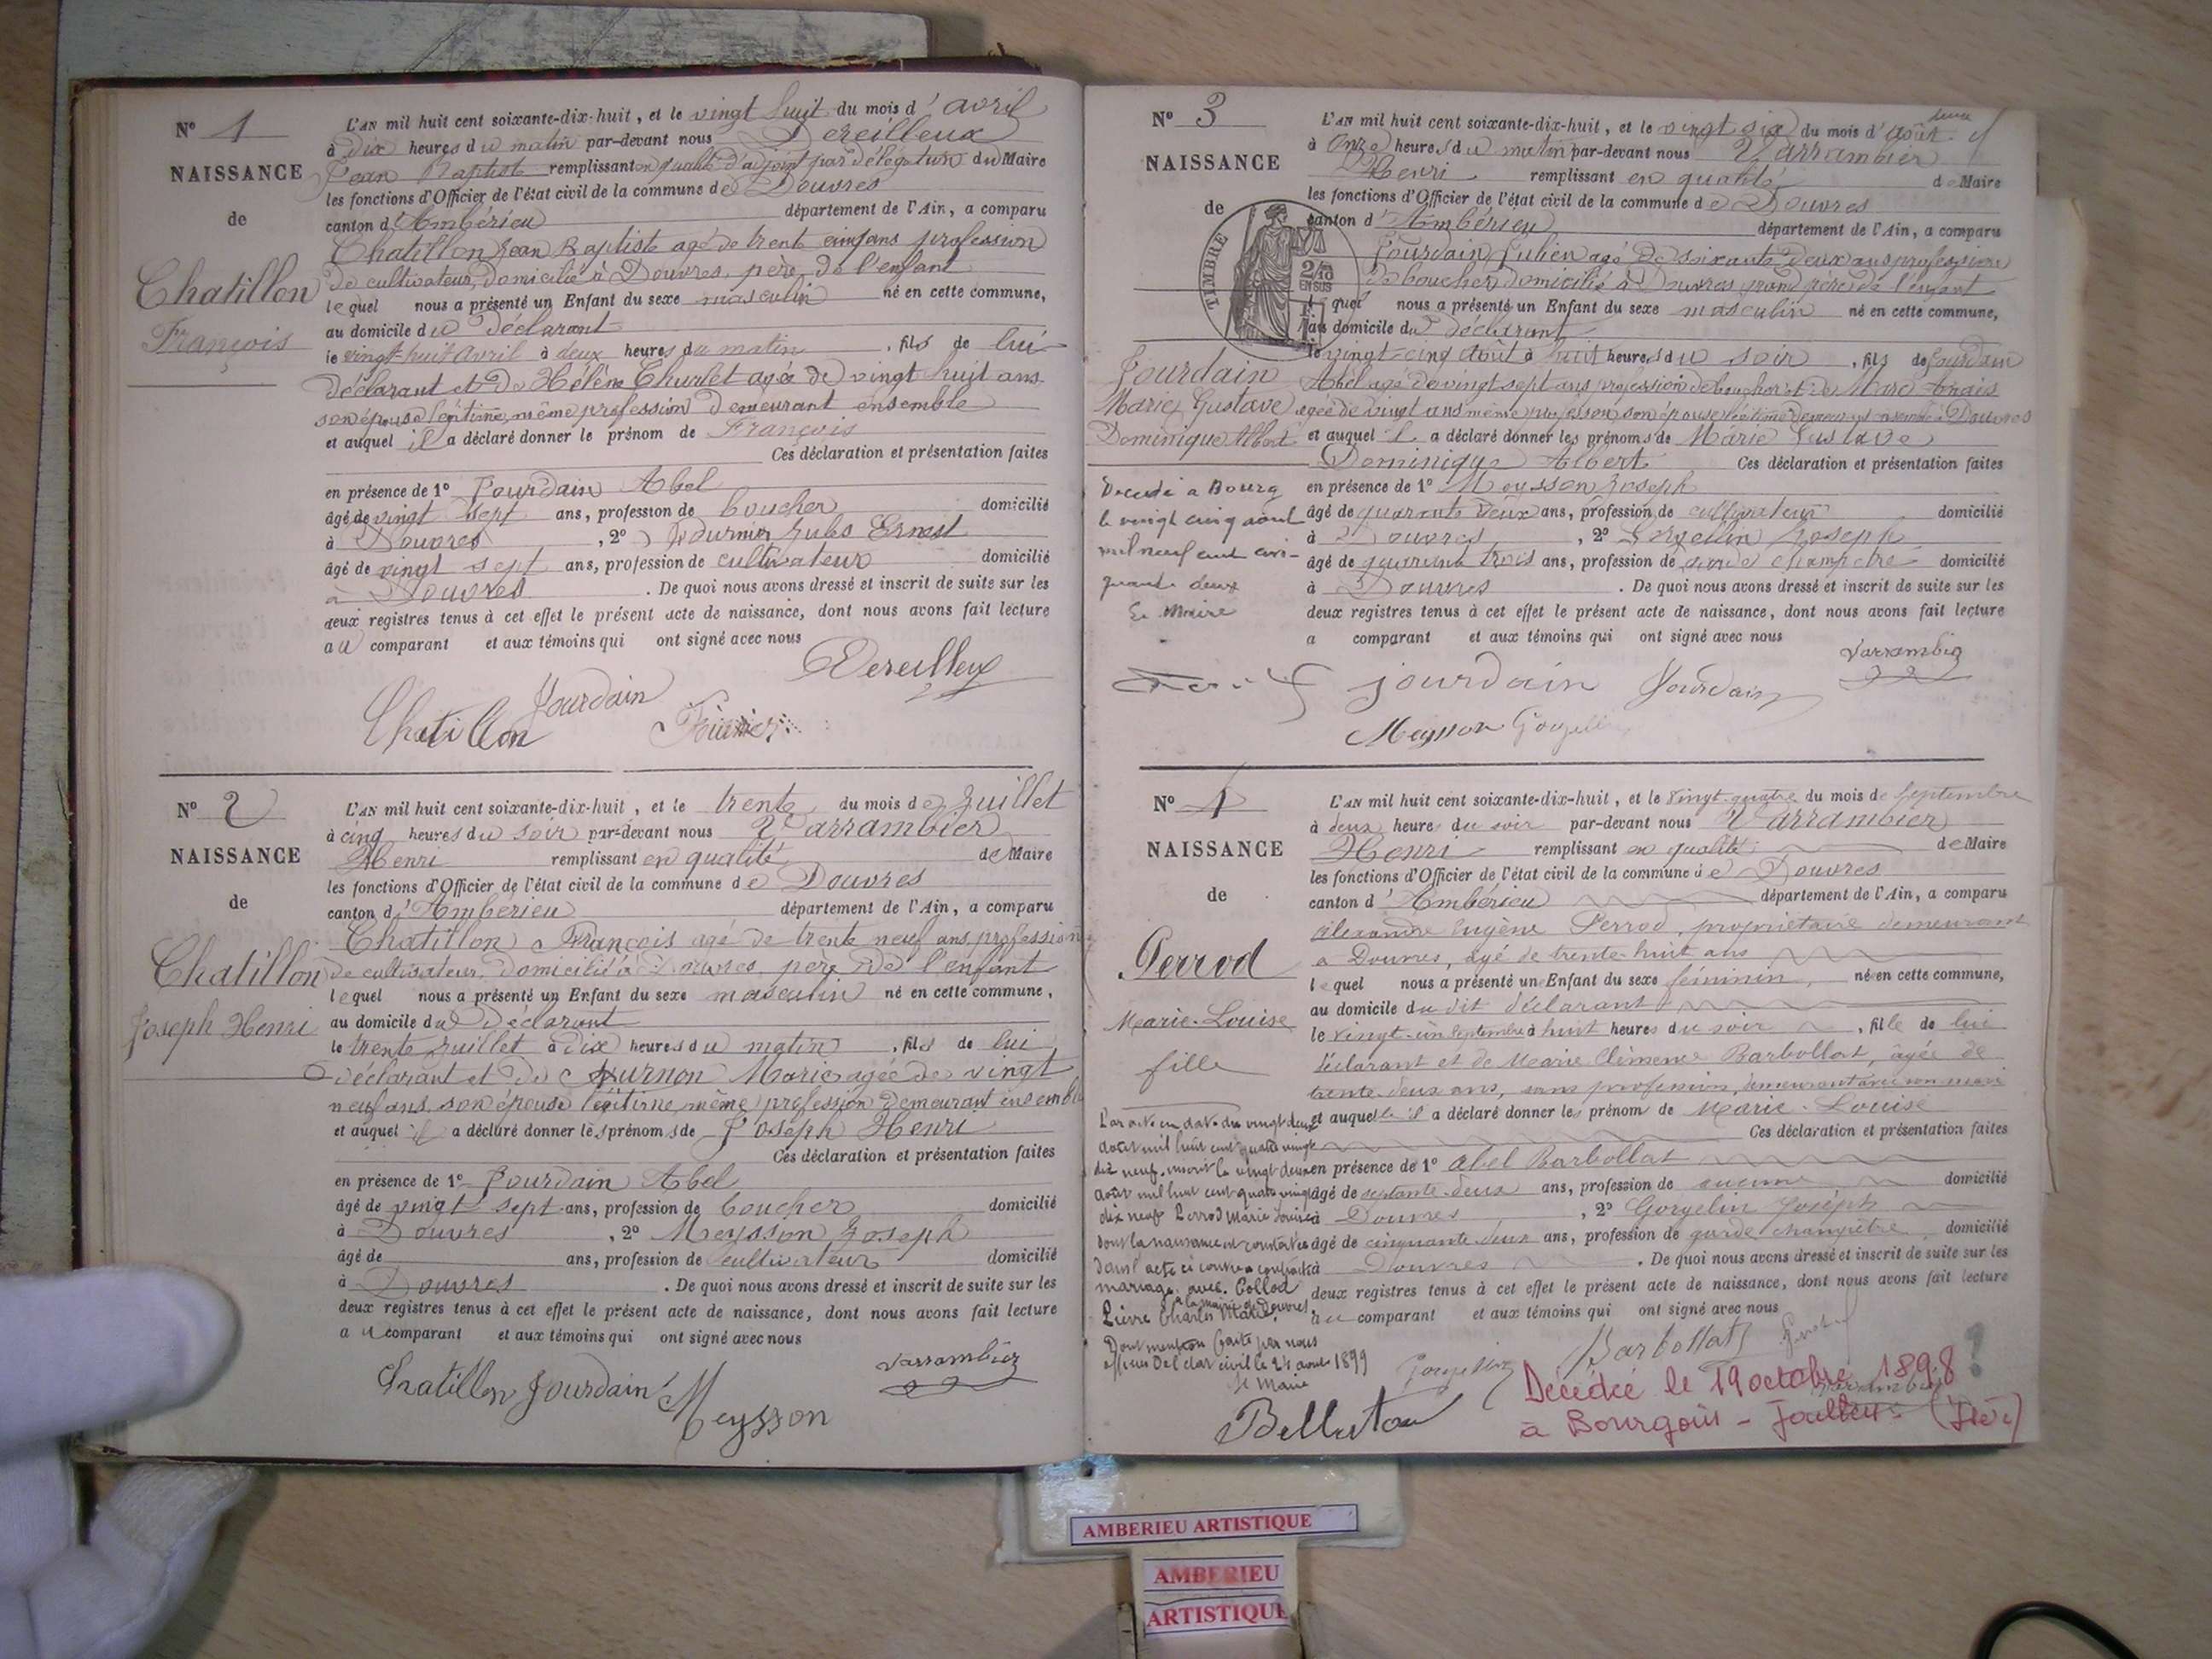 N° 1
NAISSANCE
de
Chatillon
François
L'AN mil huit cent soixante-dix-huit, et le vingt huit du mois d'avril
à dix heures du matin par-devant nous Dereilleux
Jean Baptiste remplissant en qualité d'adjoint par délégation du Maire
les fonctions d'Officier de l'état civil de la commune de Douvres
canton d'Ambérieu département de l'Ain, a comparu
Chatillon Jean Baptiste agé de trente cinq ans profession
de cultivateur, domicilié à Douvres, père de l'enfant
lequel nous a présenté un Enfant du sexe masculin né en cette commune,
au domicile du déclarant
le vingt-huit avril à deux heures du matin, fils de lui
déclarant et de Hélène Churlet agée de vingt huit ans
son épouse légitime, même profession demeurant ensemble
et auquel il a déclaré donner le prénom de François
Ces déclaration et présentation faites
en présence de 1° Jourdain Abel
âgé de vingt sept ans, profession de boucher domicilié
à Douvres, 2° Fournier Jules Ernest
âgé de vingt sept ans, profession de cultivateur domicilié
à Douvres. De quoi nous avons dressé et inscrit de suite sur les
deux registres tenus à cet effet le présent acte de naissance, dont nous avons fait lecture
au comparant et aux témoins qui ont signé avec nous
Dereilleux
Chatillon Jourdain Fournier
N° 2
NAISSANCE
de
Chatillon
Joseph Henri
L'AN mil huit cent soixante-dix-huit, et le trente du mois de Juillet
à cinq heures du soir par-devant nous Varrambier
Henri remplissant en qualité de Maire
les fonctions d'Officier de l'état civil de la commune de Douvres
canton d'Ambérieu département de l'Ain, a comparu
Chatillon François agé de trente neuf ans, profession
de cultivateur, domicilié à Douvres, père de l'enfant
lequel nous a présenté un Enfant du sexe masculin né en cette commune,
au domicile du Déclarant
le trente Juillet à dix heures du matin, fils de lui
déclarant et de Furnon Marie agée de vingt
neuf ans, son épouse légitime même profession demeurant ensemble
et auquel il a déclaré donner les prénoms de Joseph Henri
Ces déclaration et présentation faites
en présence de 1° Jourdain Abel
âgé de vingt sept ans, profession de boucher domicilié
à Douvres, 2° Meysson Joseph
âgé de ans, profession de cultivateur domicilié
à Douvres. De quoi nous avons dressé et inscrit de suite sur les
deux registres tenus à cet effet le présent acte de naissance, dont nous avons fait lecture
au comparant et aux témoins qui ont signé avec nous
Varrambier
Chatillon Jourdain Meysson
N° 3
NAISSANCE
de
TIMBRE
2/10
EN SUS
Jourdain
Marie Gustave
Dominique Albert
Décédé à Bourg
le vingt cinq août
mil neuf cent cin-
quante deux
Le Maire
L'AN mil huit cent soixante-dix-huit, et le vingt six du mois d'août
à onze heures du matin par-devant nous Varrambier
Henri remplissant en qualité de Maire
les fonctions d'Officier de l'état civil de la commune de Douvres
canton d'Ambérieu département de l'Ain, a comparu
Jourdain Julien agé de soixante deux ans profession
de boucher, domicilié à Douvres grand père de l'enfant
lequel nous a présenté un Enfant du sexe masculin né en cette commune,
au domicile du déclarant
le vingt-cinq août à huit heures du soir, fils de Jourdain
Abel agé de vingt sept ans profession de boucher et de
agée de vingt ans même profession, son épouse légitime demeurant ensemble à Douvres
et auquel il a déclaré donner les prénoms de Marie Gustave
Dominique Albert Ces déclaration et présentation faites
en présence de 1° Meysson Joseph
âgé de quarante deux ans, profession de cultivateur domicilié
à Douvres, 2° Joseph
âgé de quarante trois ans, profession de garde champêtre domicilié
à Douvres. De quoi nous avons dressé et inscrit de suite sur les
deux registres tenus à cet effet le présent acte de naissance, dont nous avons fait lecture
a comparant et aux témoins qui ont signé avec nous
Varrambier
jourdain Jourdain
Meysson
N° 4
NAISSANCE
de
Perrod
Marie-Louise
fille
L'AN mil huit cent soixante-dix-huit, et le vingt-quatre du mois de Septembre
à deux heures du soir par-devant nous Varrambier
Henri remplissant en qualité de Maire
les fonctions d'Officier de l'état civil de la commune de Douvres
canton d'Ambérieu département de l'Ain, a comparu
Alexandre Eugène Perrod, propriétaire demeurant
à Douvres, âgé de trente-huit ans
lequel nous a présenté un Enfant du sexe féminin, né en cette commune,
au domicile du dit déclarant
le vingt-un Septembre à huit heures du soir, fille de lui
déclarant et de Marie Clémence Barbollat, âgée de
trente-deux ans, sans profession, demeurant avec son mari
et auquel il a déclaré donner les prénom de Marie-Louise
Ces déclaration et présentation faites
en présence de 1° Abel Barbollat
âgé de septante-deux ans, profession de aucune domicilié
à Douvres, 2° Gorgelin Joseph
âgé de cinquante deux ans, profession de garde champêtre domicilié
à Douvres. De quoi nous avons dressé et inscrit de suite sur les
deux registres tenus à cet effet le présent acte de naissance, dont nous avons fait lecture
au comparant et aux témoins qui ont signé avec nous
Par acte en date du vingt deux
août mil huit cent quatre vingt
dix neuf, inscrit le vingt deux
août mil huit cent quatre vingt
dix neuf Perrod Marie Louise
dont la naissance est constatée
dans l'acte ci contre a contracté
mariage avec Collod
Pierre Charles
à la mairie de Douvres
Dont mention faite par nous
officier de l'état civil le 24 août 1899
Le Maire
Barbollat
Décédée le 19 octobre 1898 ?
à Bourgoin - Jallieu - (Isère)
AMBERIEU ARTISTIQUE
AMBERIEU
ARTISTIQUE